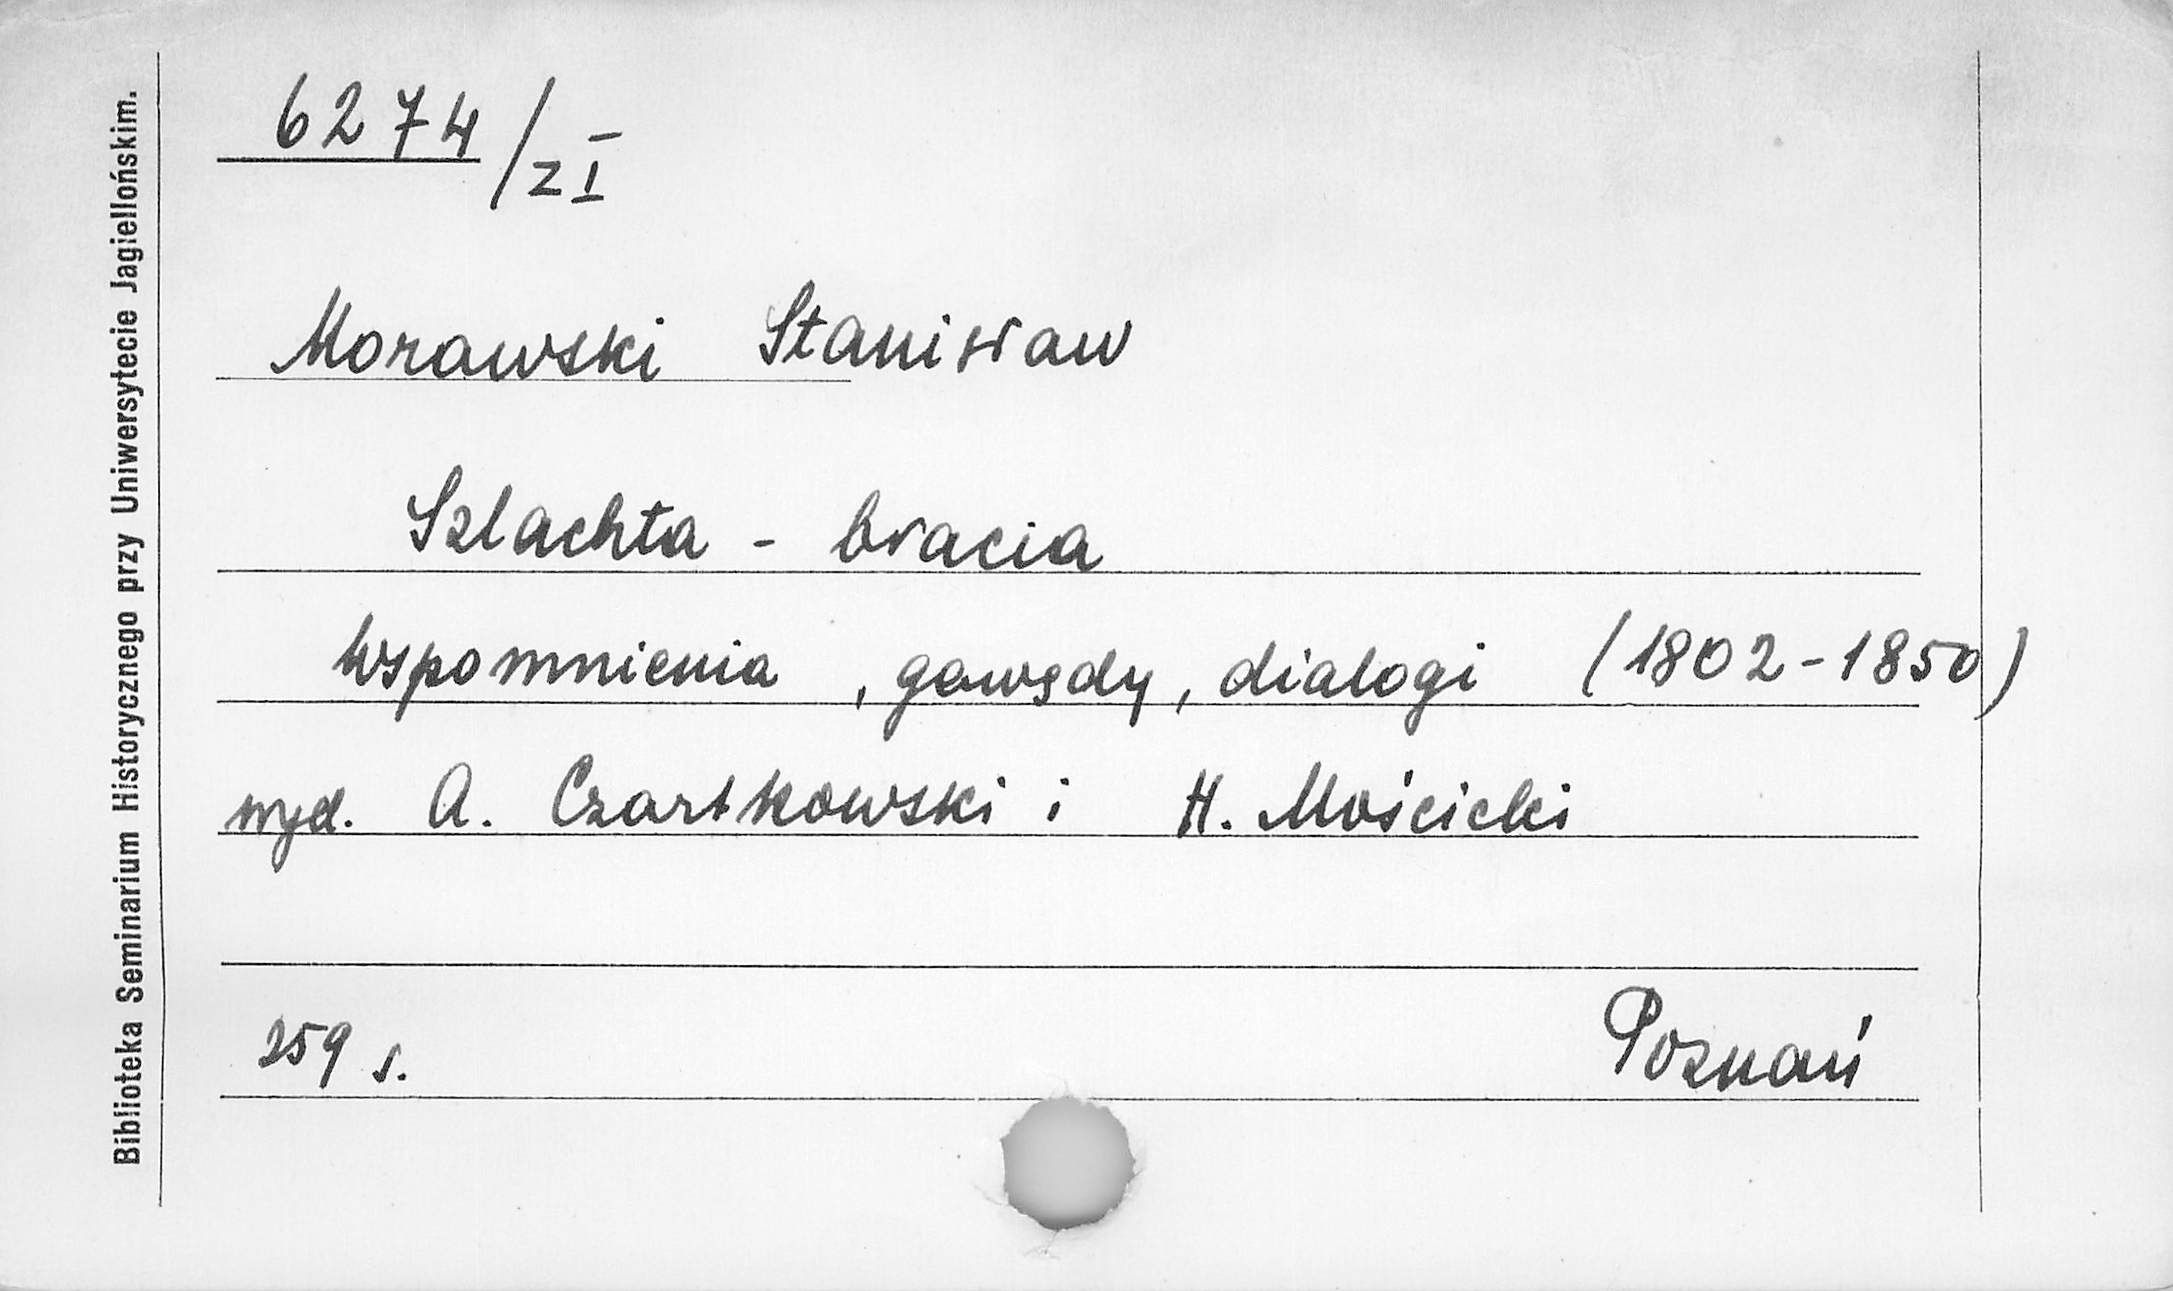 Biblioteka Seminarium Historycznego przy Uniwersytecie Jagiellońskim.
6274/z I
Morawski Stanisław
Szlachta - bracia
Wspomnienia, gawędy, dialogi (1802-1850)
wyd. A. Czartkowski i H. Mościcki
259 s.
Poznań